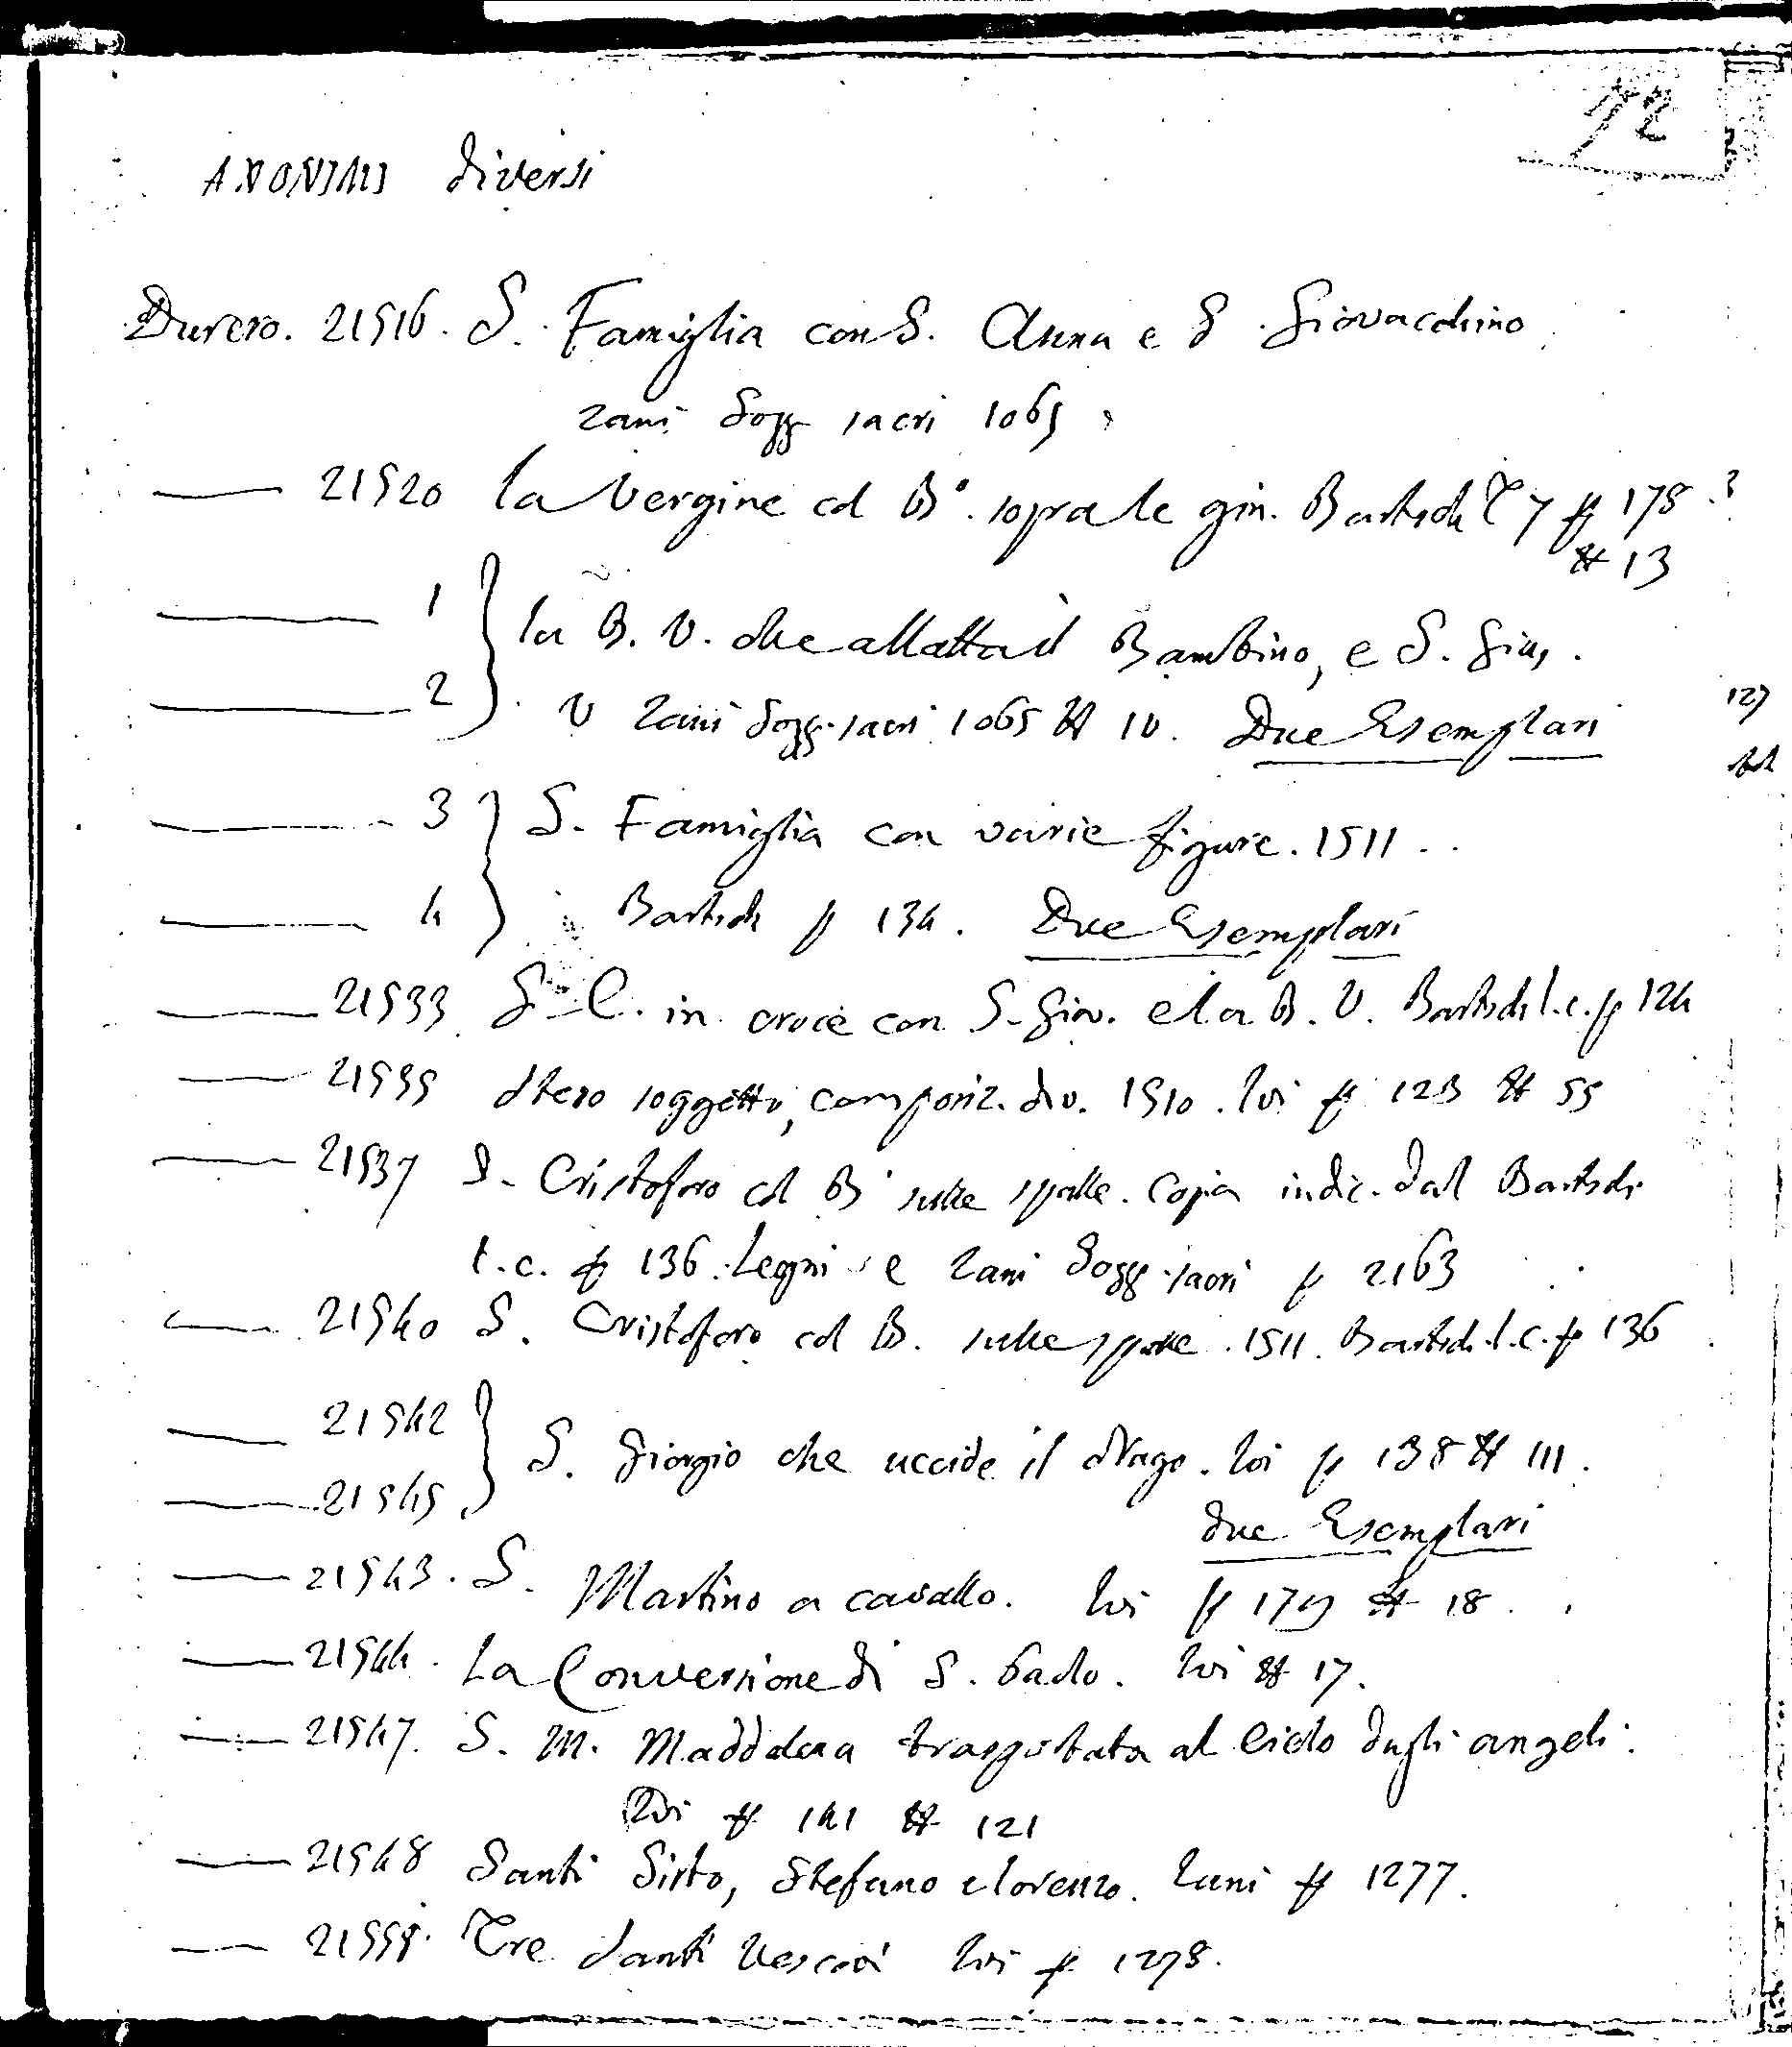 72
ANONIMI diversi
Durero. 21516. S. Famiglia con S. Anna e S. Giovacchino
Zani Sogg sacri 1065
21520 la Vergine col Bo. sopra le gin. Bartsch T 7 p 178
# 13
1 la B. V. che allatta il Bambino, e S. Gius.
2 V Zani Sogg. sacri 1065 # 10. Due Esemplari
3 S. Famiglia con varie figure. 1511..
4 Bartsch p 134. Due Esemplari
21533 G. C. in croce con S. Giov. e la B. V. Bartsch l. c. p 124
21535 stesso soggetto, composiz. div. 1510. Ivi p 123 # 55
21537 S. Cristoforo col B sulle spalle. Copia indic. dal Bartsch
l. c. p 136. Legni e Zani Sogg. sacri p 2163
21540 S. Cristoforo col B. sulle spalle. 1511. Bartsch. l. c. p 136
21542 S. Giorgio che uccide il drago. Ivi p 138 # 111.
21545 due Esemplari
21543. S. Martino a cavallo. Ivi p 179 # 18.
21544. La Conversione di S. Paolo. Ivi # 17.
21547. S. M. Maddalena trasportata al Cielo dagli angeli.
Ivi p 141 # 121
21548 Santi Sisto, Stefano e Lorenzo. Zani p 1277.
Tre Santi Vescovi Ivi p 1278.